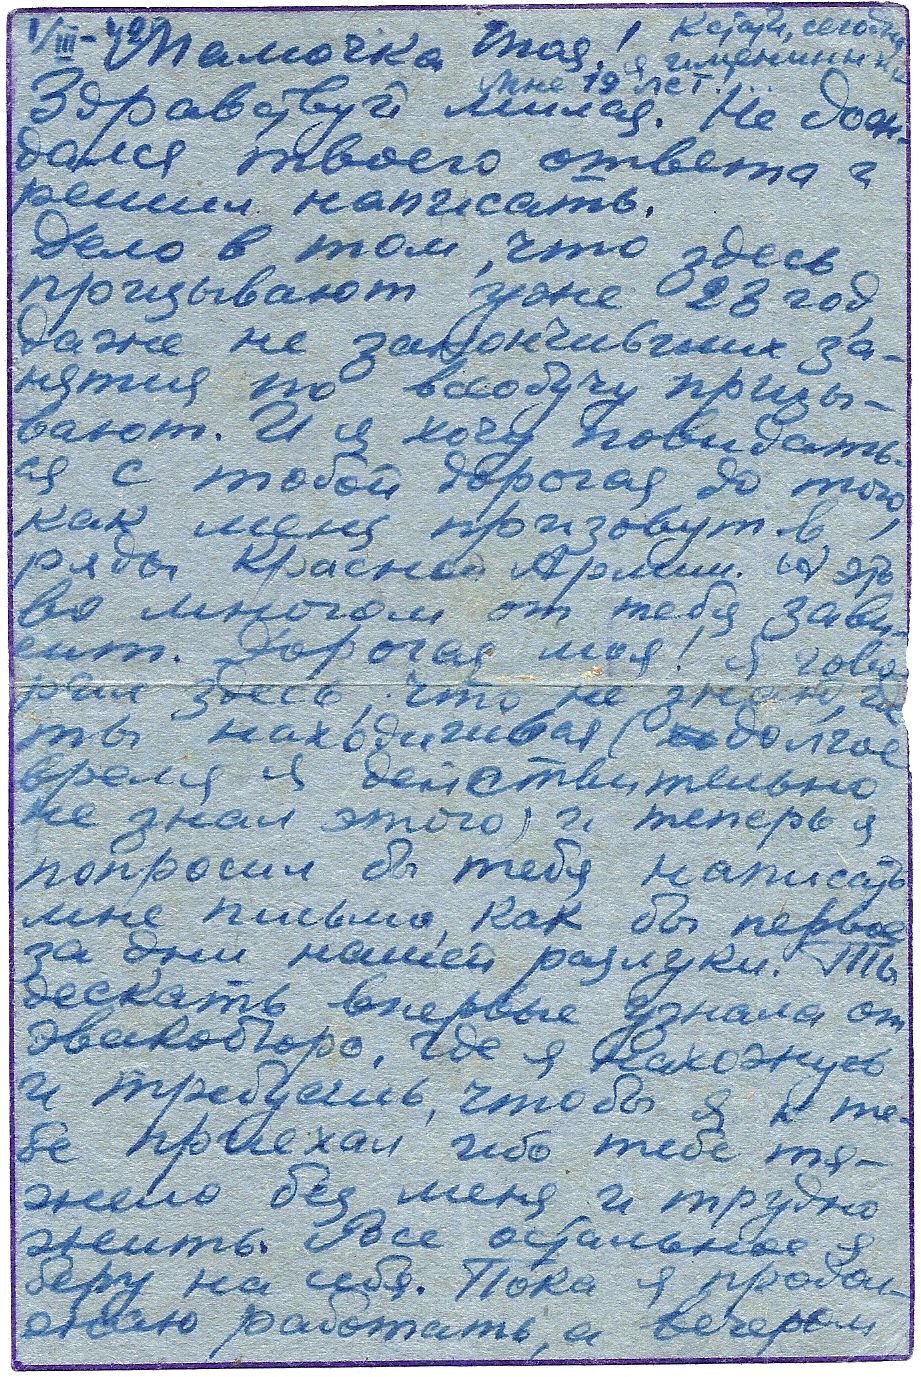 1/III-42г Мамочка моя! Кстати, сегодня
я именинник
Мне 19 лет....
Здравствуй милая. Не дож-
дался твоего ответа и
решил написать.
Дело в том, что здесь
призывают уже 23 год,
даже не закончивших за-
нятия по всеобучу призы-
вают. И я хочу повидать-
ся с тобой дорогая до того,
как меня призовут в
ряды Красной Армии. И это
во многом от тебя зави-
сит. Дорогая моя! Я гово-
рил здесь, что не знаю, где
ты находишься (долгое
время я действительно
не знал этого) и теперь я
попросил бы тебя написать
мне письмо, как бы первое
за дни нашей разлуки. Ты
дескать впервые узнала от
Эвакобюро, где я нахожусь
и требуешь, чтобы я к те-
бе приехал ибо тебе тя-
жело без меня и трудно
жить. Все остальное я
беру на себя. Пока я продол-
жаю работать, а вечером